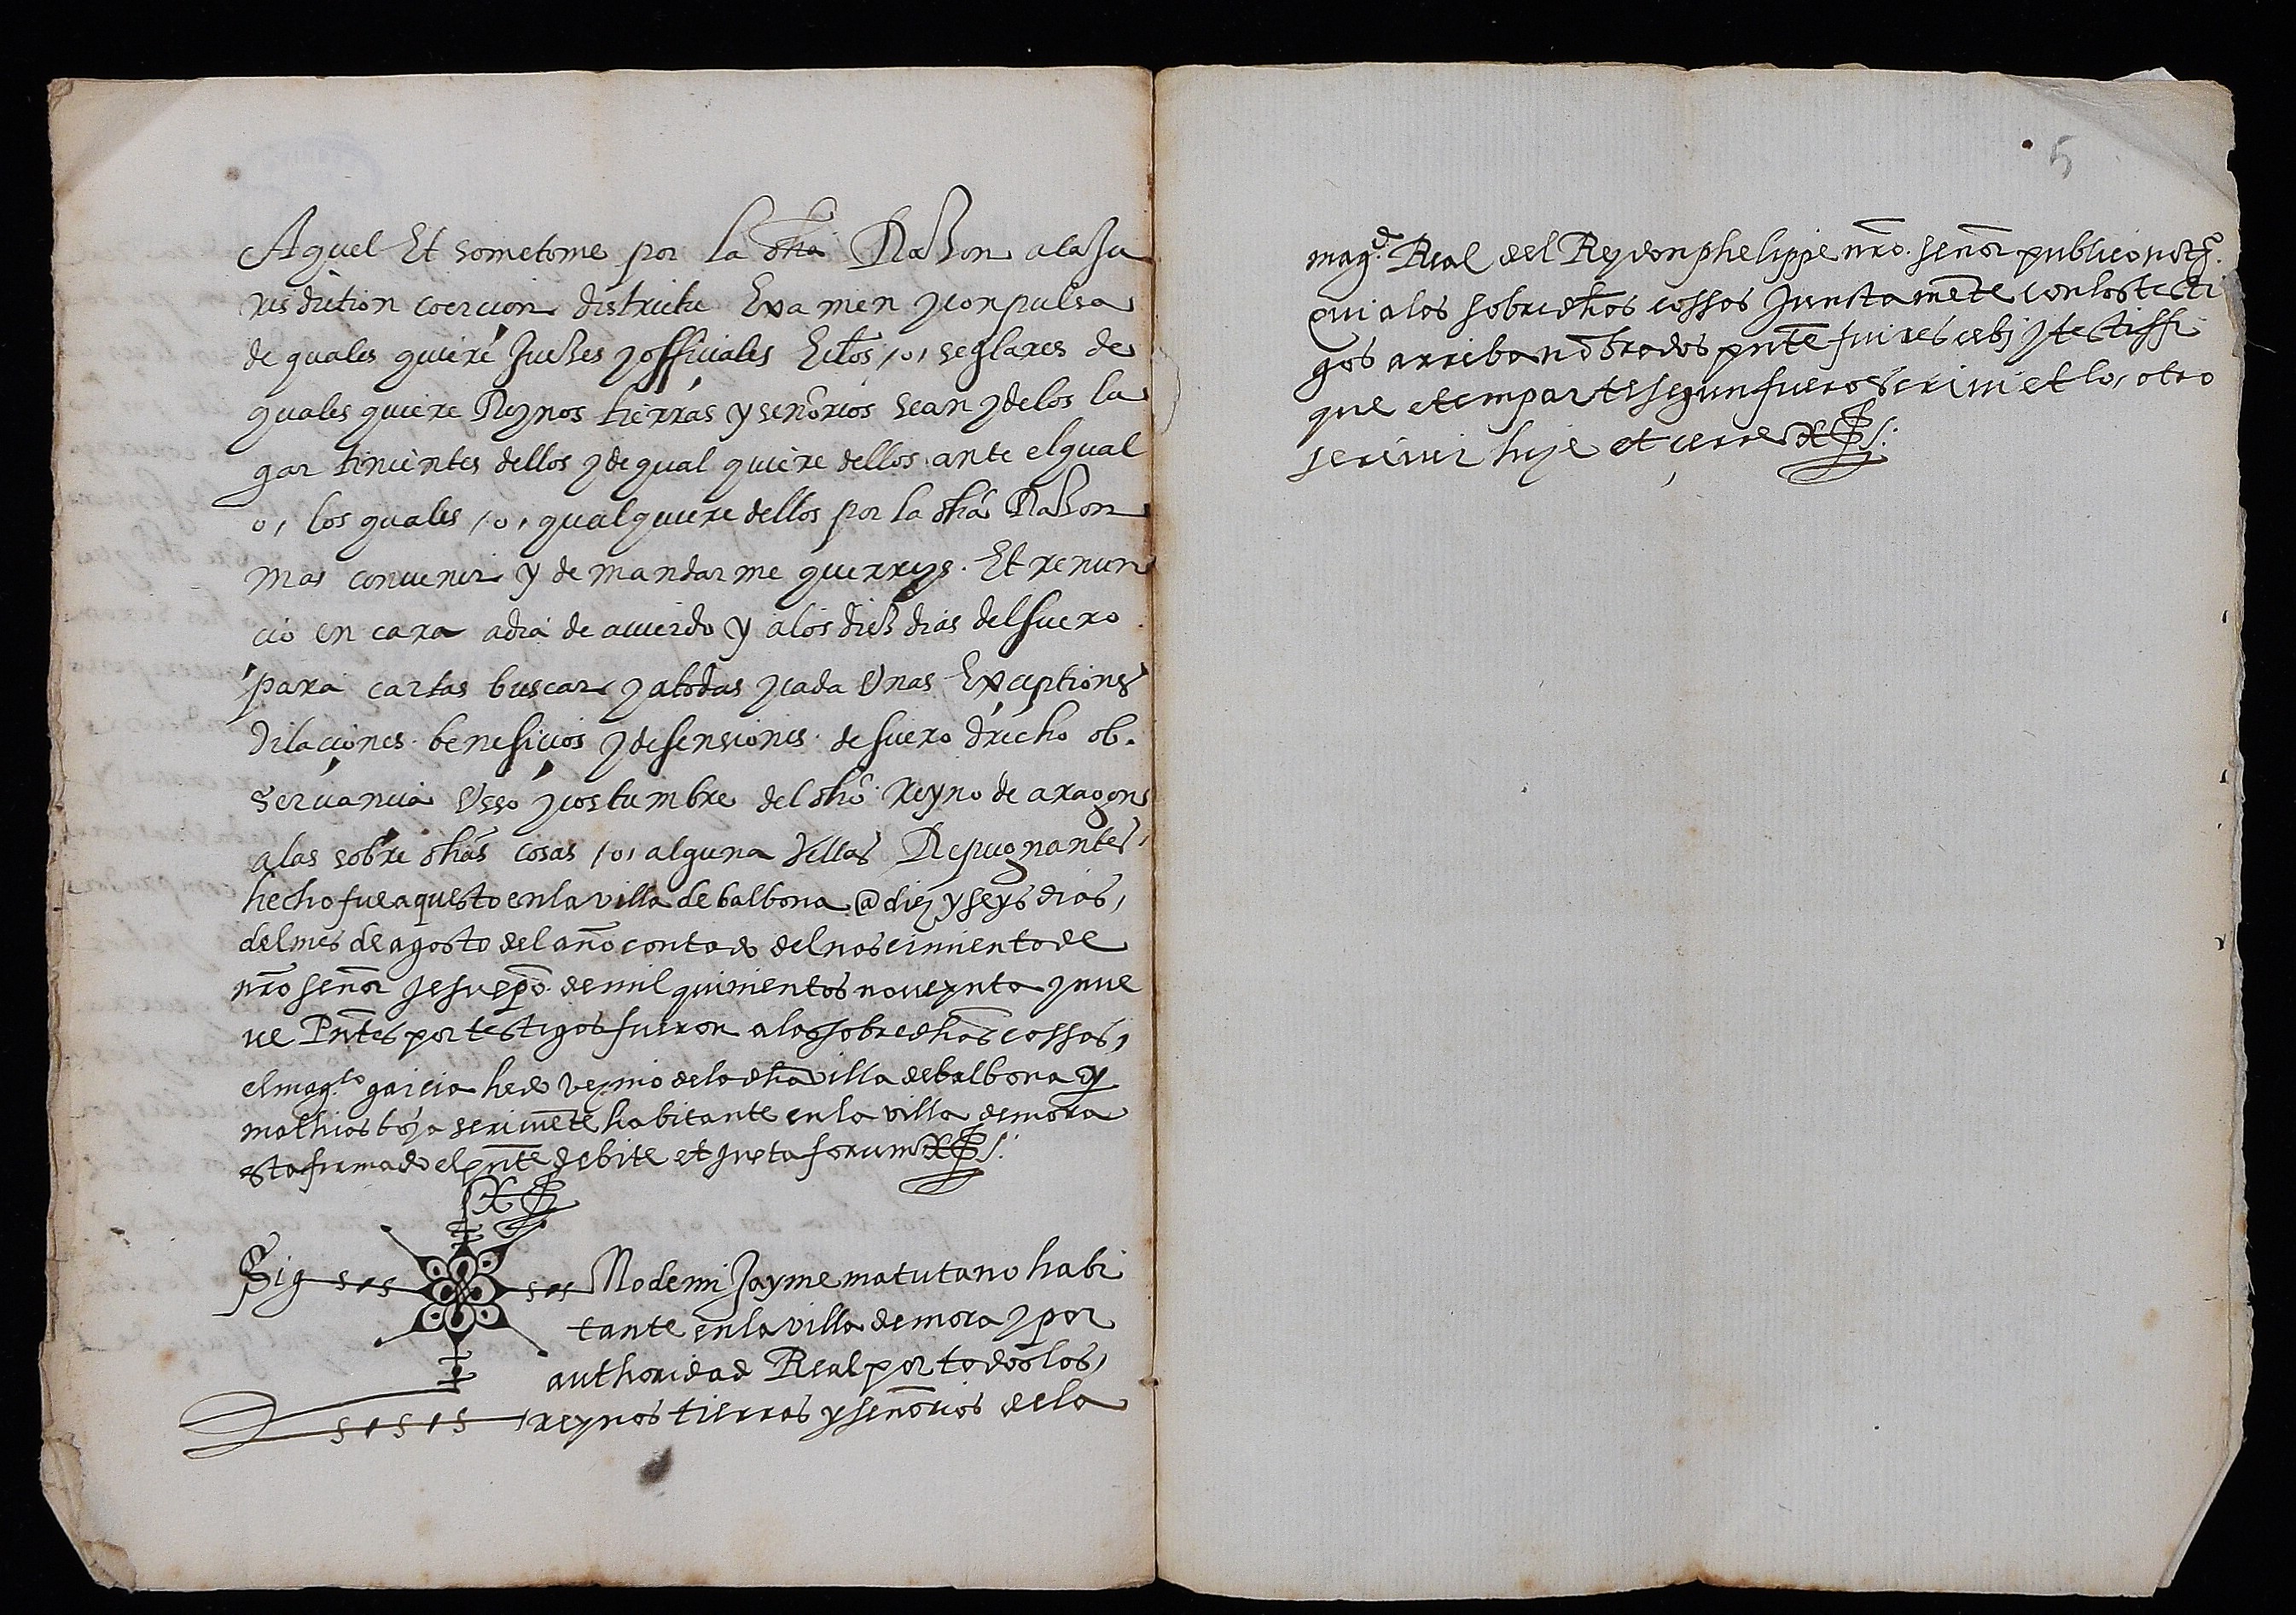 Aquel Et sometome por la dha Razon ala Ju
risdiction coercion districtu Examen y conpulsa
de quales quiere Juezes y officiales Ecclos, o, seglares de
quales quiere Reynos tierras y señorios sean y delos lu
gar tinientes dellos y de qual quiere dellos ante el qual
o, los quales, o, qual quiere dellos por la dha Razon
mas convenir y de mandar me querreys. Et renun
cio en cara a dia de acuerdo y a los diez dias del fuero
para cartas buscar y a todas y cada Unas Exceptiones
dilaciones beneficios y defensiones de fuero drecho ob.
servancia Usso y costumbre del dho Reyno de aragon
a las sobre dhas cosas, o, alguna dellas Repugnantes,
hecho fue aquesto en la villa de balbona @ diez y seys dias,
del mes de agosto del año contado del nascimiento de
nro señor Jesu xpo. de mil quinientos noveynta y nue
ve Pntes por testigos fueron a las sobredhas cossas,
el magco garcia hedo vezino de la dha villa de balbona y
mathias scrivente habitante en la villa de mora
esta firmado el pnte debite et Juxta forum
Sig No de mi Jayme matutano habi
tante en la villa de mora y por
authoridad Real por todos los,
reynos tierras y señorios de la
5
magd. Real del Rey don phelippe nro. señor publico notº.
qui a los sobredhos cossas Junctamente con los testi
gos arriba nōbrados pnte fui rescebi y testiffi
que et em parte segun fuero scrivi et lo, otro
screvir hize et cerre